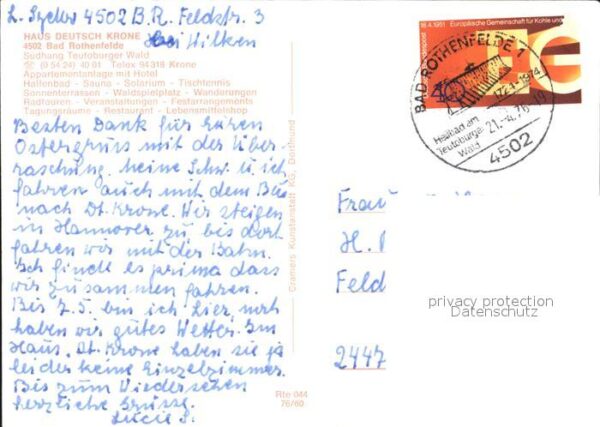 L. Szelis 4502 B.R. Feldstr. 3
bei Hilken
HAUS DEUTSCH KRONE
4502 Bad Rothenfelde
Südhang Teutoburger Wald
☎ (0 54 24) 40 81 Telex 94318 Krone
Appartementanlage mit Hotel
Hallenbad - Sauna - Solarium - Tischtennis
Sonnenterrassen - Waldspielplatz - Wanderungen
Radtouren - Veranstaltungen - Festarrangements
Tagungsräume - Restaurant - Lebensmittelshop
Besten Dank für Euren
Ostergruss mit der Über-
raschung. Meine Schw. u. ich
fahren auch mit dem Bus
nach Dt. Krone. Wir steigen
in Hannover zu bis dort
fahren wir mit der Bahn.
Ich finde es prima dass
wir zusammen fahren.
Bis 7.5. bin ich hier, noch
haben wir gutes Wetter. Im
Haus. Dt. Krone haben sie ja
leider keine Einzelzimmer.
Bis zum Wiedersehen
herzliche Grüsse.
Lucie S.
Cramers Kunstanstalt KG, Dortmund
Rte 044
76/80
18.4.1951 Europäische Gemeinschaft für Kohle und
bundespost
40
BAD ROTHENFELDE
1724-1974
21.-4.76
Heilbad am
Teutoburger
Wald
4502
Frau
H.
Feld
2447
privacy protection
Datenschutz